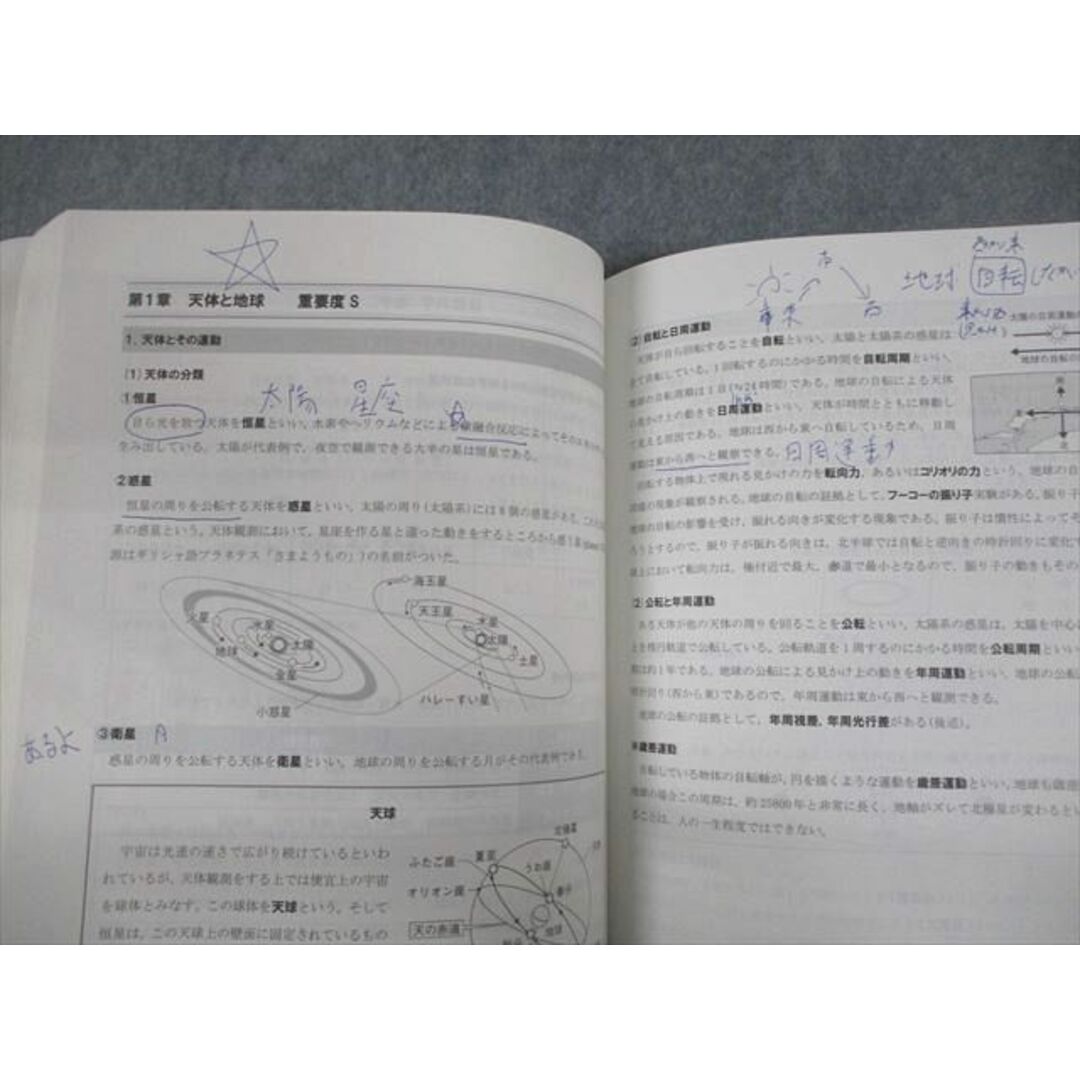 第1章 天体と地球 重要度 S
1. 天体とその運動
(1) 天体の分類
①恒星
太陽 星座
自ら光を放つ天体を恒星といい、水素やヘリウムなどによる核融合反応によって
生み出している。太陽が代表例で、夜空で観測できる大半の星は恒星である。
②惑星
恒星の周りを公転する天体を惑星といい、太陽の周り(太陽系)には8個の惑星がある。
系の惑星という。天体観測において、星座を作る星と違った動きをするところから惑
源はギリシャ語プラネテス「さまようもの」)の名前がついた。
火星
水星
太陽
地球
金星
小惑星
海王星
天王星
水星
太陽
土星
ハレーすい星
あるよ
③衛星 月
惑星の周りを公転する天体を衛星といい、地球の周りを公転する月がその代表例である。
天球
宇宙は光速の速さで広がり続けているといわ
れているが、天体観測をする上では便宜上の宇宙
を球体とみなす。この球体を天球という。そして
恒星は、この天球上の壁面に固定されているもの
北極星
ふたご座
夏至
うお座
オリオン座
春分
天の赤道
地球
地球 自転
東
西
太陽の日周運動
地球の自転の
(2) 自転と日周運動
天体が自ら回転することを自転といい、太陽と太陽系の惑星は
全て自転している。1回転するのにかかる時間を自転周期といい、
地球の自転周期は1日(≒24時間)である。地球の自転による天体
の見かけ上の動きを日周運動といい、天体が時間とともに移動し
て見える原因である。地球は西から東へ自転しているため、日周
運動は東から西へと観察できる。
日周運動
回転する物体上で現れる見かけの力を転向力、あるいはコリオリの力という。地球の自
の現象が観察される。地球の自転の証拠として、フーコーの振り子実験がある。振り子
地球の自転の影響を受け、振れる向きが変化する現象である。振り子は慣性によってそ
ろうとするので、振り子が振れる向きは、北半球では自転と逆向きの時計回りに変化す
において転向力は、極付近で最大、赤道で最小となるので、振り子の動きもその
(2) 公転と年周運動
ある天体が他の天体の周りを回ることを公転といい、太陽系の惑星は、太陽を中心に
軌道で公転している。公転軌道を1周するのにかかる時間を公転周期といい
は約1年である。地球の公転による見かけ上の動きを年周運動といい、地球の公転
計回り(西から東)であるので、年周運動は東から西へと観測できる。
地球の公転の証拠として、年周視差、年周光行差がある(後述)。
※歳差運動
自転している物体の自転軸が、円を描くような運動を歳差運動といい、地球も歳差
地球の場合この周期は、約25800年と非常に長く、地軸がズレて北極星が変わると
ことは、人の一生程度ではできない。